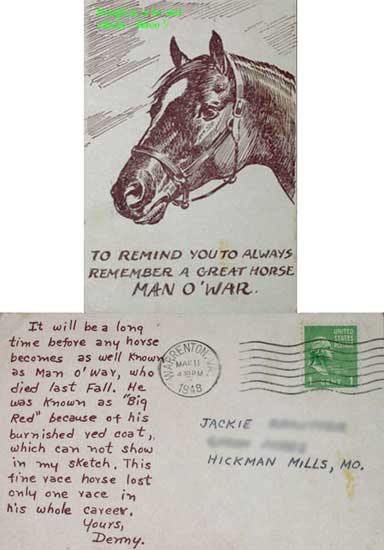 TO REMIND YOU TO ALWAYS
REMEMBER A GREAT HORSE
MAN O'WAR.
It will be a long
time before any horse
becomes as well known
as Man O'War, who
died last Fall. He
was known as "Big
Red" because of his
burnished red coat,
which can not show
in my sketch. This
fine race horse lost
only one race in
his whole career.
Yours,
Denny.
WARRENTON, VA.
MAR 11
1948
UNITED
STATES
POSTAGE
1 CENT 1
JACKIE
HICKMAN MILLS, MO.